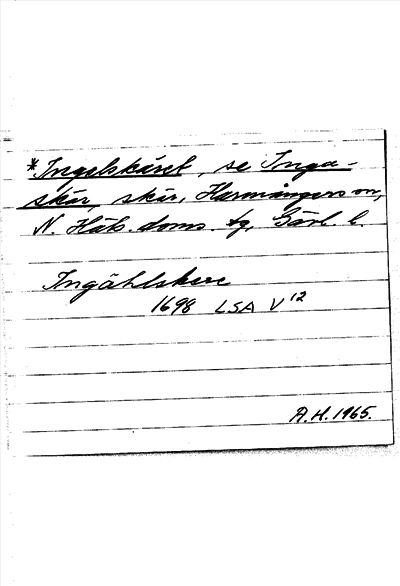 *Ingelskäret, se Inga-
skär, skär, Harmångers sn,
N. Häls. doms. tg, Gävl. l.
Ingåhlskere
1698 LSA V 12
A.H. 1965.